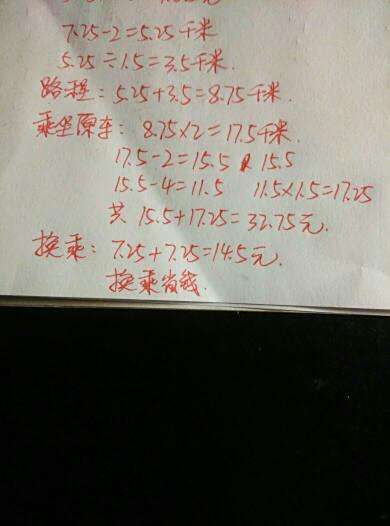 7.25-2=5.25千米
5.25÷1.5=3.5千米.
路程: 5.25+3.5=8.75千米.
乘坐原车: 8.75×2=17.5千米.
17.5-2=15.5 15.5
15.5-4=11.5 11.5×1.5=17.25
共 15.5+17.25=32.75元.
换乘: 7.25+7.25=14.5元.
换乘省钱.